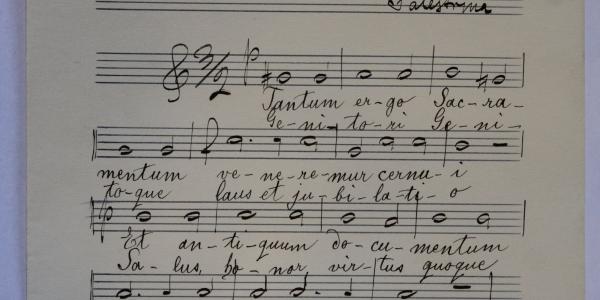 Palestrina
3/2
Tantum er-go Sac-ra-
Ge-ni-to-ri Ge-ni-
mentum ve-ne-re-mur cernu-i
to-que laus et ju-bi-la-ti-o
Et an-ti-quum do-cu-mentum
Sa-lus, ho-nor, vir-tus quoque